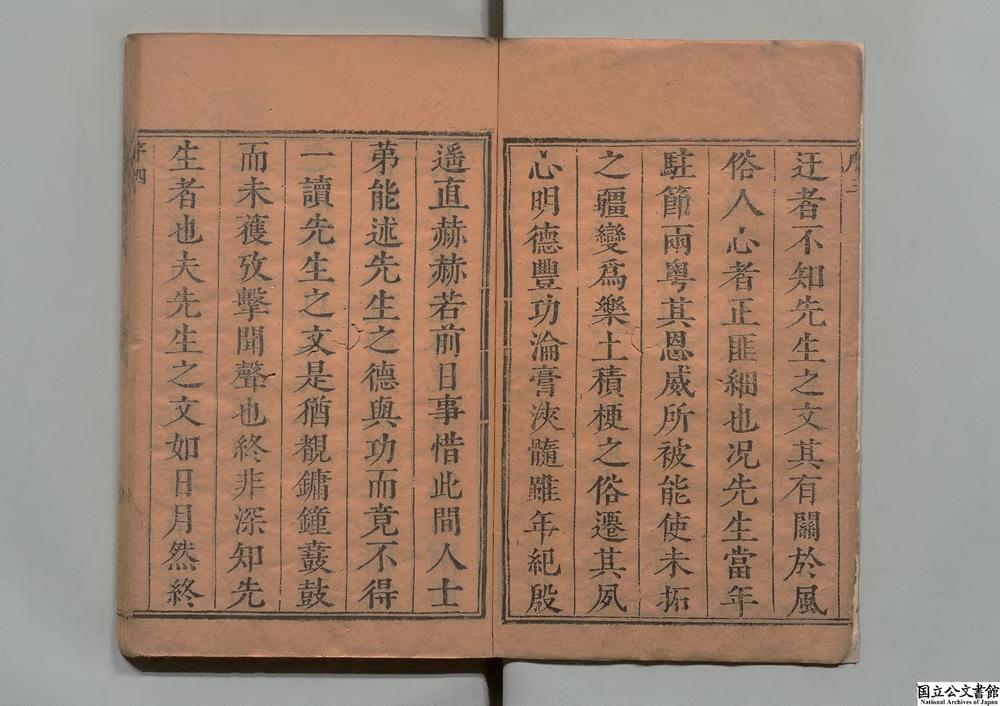 迂者不知先生之文其有關於風
俗人心者正匪細也况先生當年
駐節兩粤其恩威所被能使未拓
之疆變爲樂土積梗之俗遷其夙
心明德豐功淪膏浹髓雖年紀殷
遥直赫赫若前日事惜此間人士
第能述先生之德與功而竟不得
一讀先生之文是猶覩鏞鐘鼖鼓
而未獲攷擊聞聲也終非深知先
生者也夫先生之文如日月然終
序四
国立公文書館
National Archives of Japan